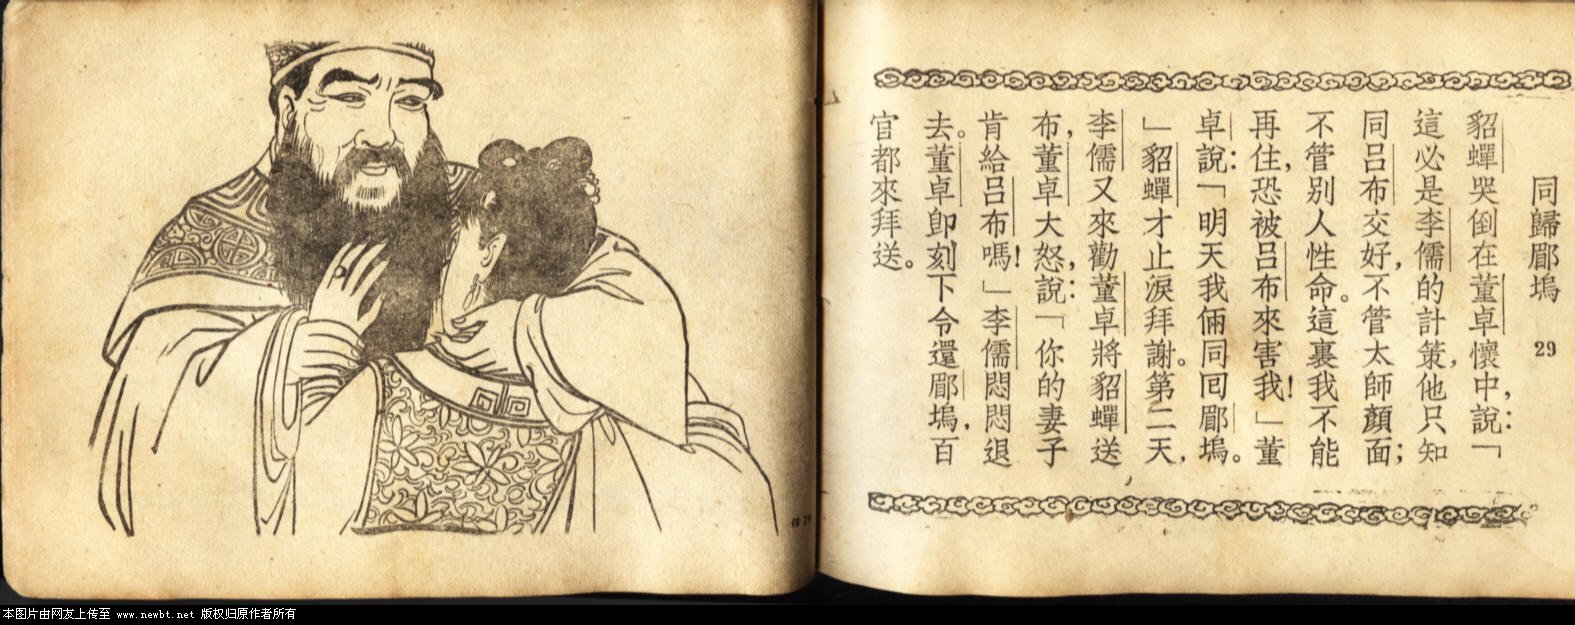 同歸郿塢 29
貂蟬哭倒在董卓懷中,說:「
這必是李儒的計策,他只知
同呂布交好,不管太師顏面;
不管别人性命。這裏我不能
再住,恐被呂布來害我!」董
卓說:「明天我倆同回郿塢。
」貂蟬才止淚拜謝。第二天,
李儒又來勸董卓將貂蟬送
布,董卓大怒,說:「你的妻子
肯給呂布嗎!」李儒悶悶退
去。董卓卽刻下令還郿塢,百
官都來拜送。
本图片由网友上传至 www.newbt.net 版权归原作者所有